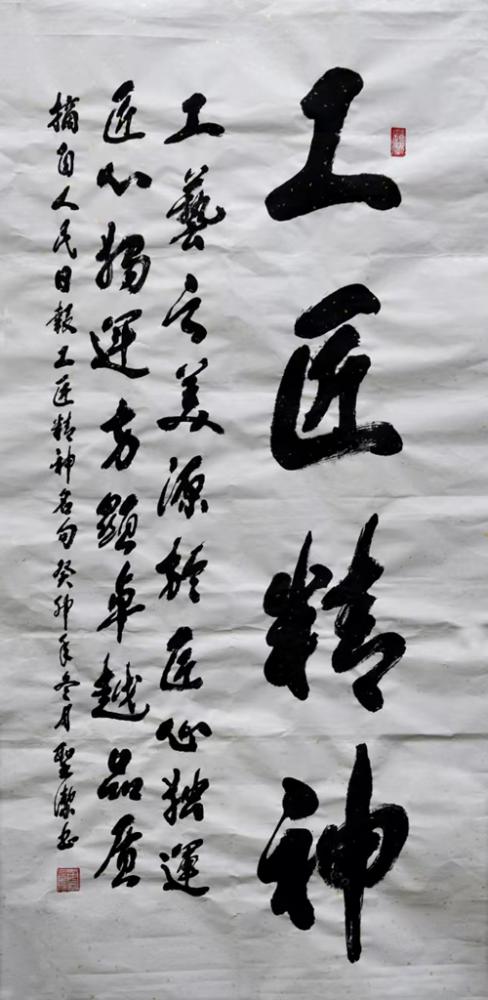 工匠精神
工藝之美源於匠心独運
匠心獨運方顯卓越品质
摘自人民日報工匠精神名句癸卯年冬月聖潔书